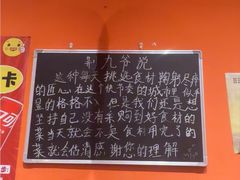 荆九爷说
这种每天挑选食材鞠躬尽瘁
的匠心在这个快节奏的城市里似乎
显的格格不入 但是我们还是想
坚持自己没有采购到好食材的
菜当天就会不卖食材用完了的
菜就会估清感谢您的理解
卡